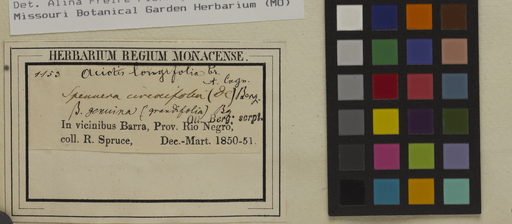 Det. Alina Freire
Missouri Botanical Garden Herbarium (MO)
HERBARIUM REGIUM MONACENSE.
1153 Aciotis longifolia Tr.
A. Cogn.
Spennera circaeifolia (DC) Beng
β. genuina (grandifolia)
Berg. scrpt.
In vicinibus Barra, Prov. Rio Negro,
coll. R. Spruce, Dec.-Mart. 1850-51.